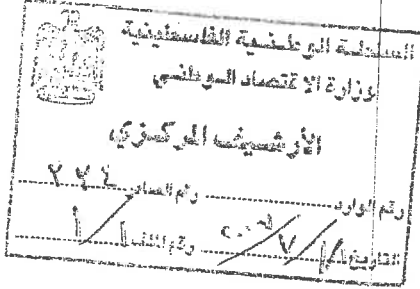 السلطة الوطنية الفلسطينية
وزارة الاقتصاد الوطني
الأرشيف المركزي
رقم الوارد ............ رقم الصادر
التاريخ ............ رقم الملف